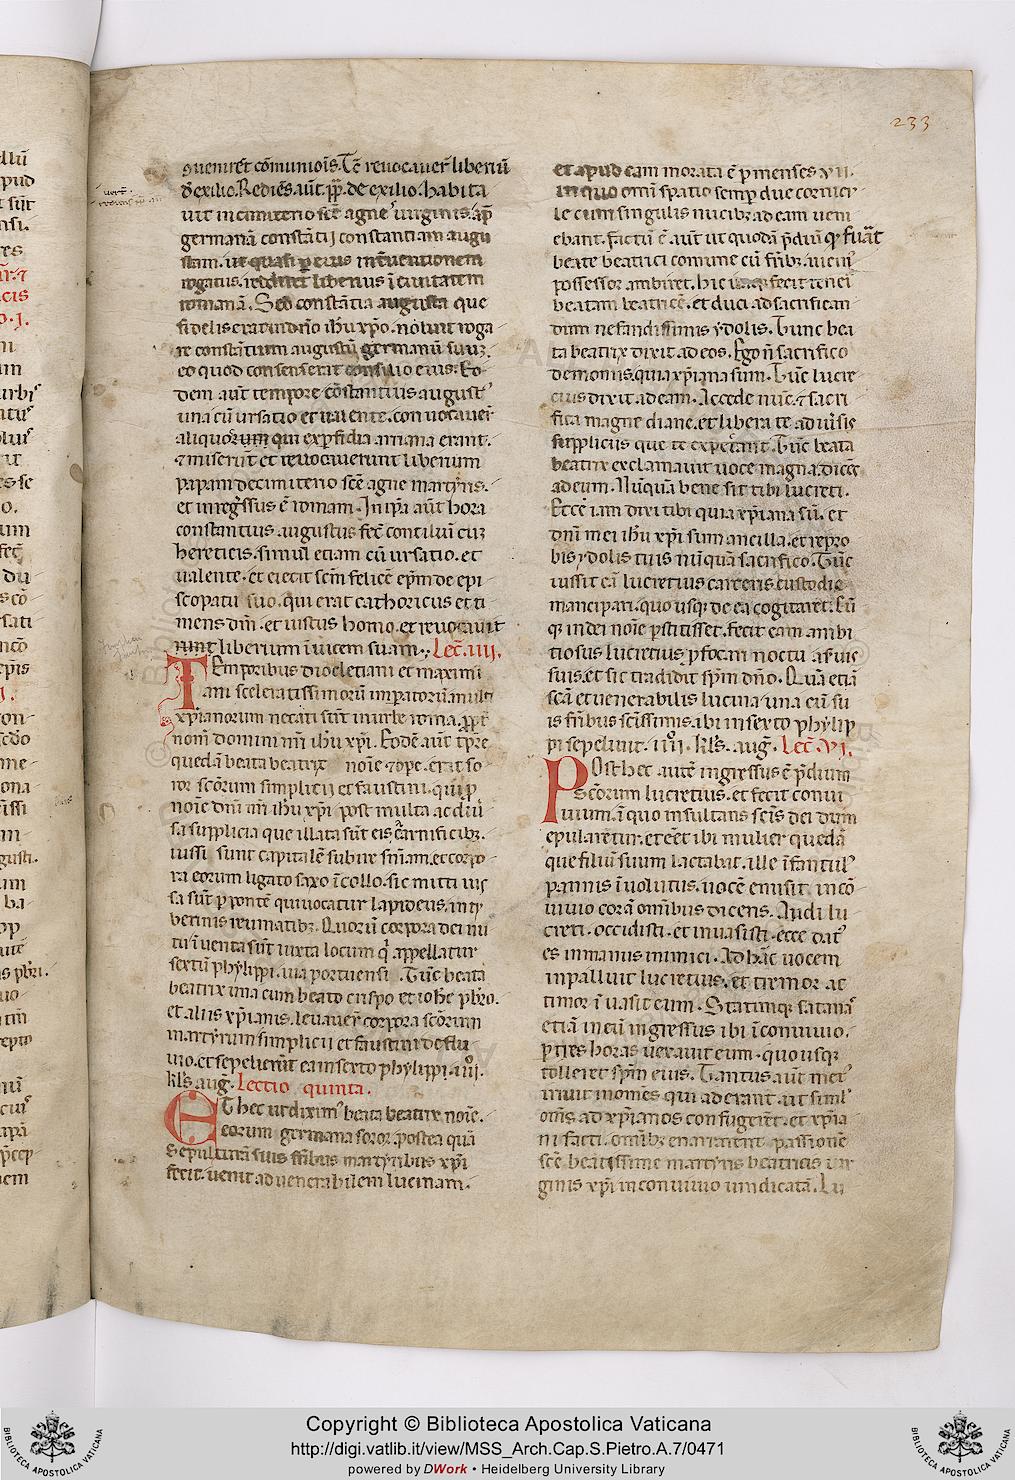 233
quenirēt cōmunioīs. Tc̄ revocauer̄ liberiū
dexilio. Rediēs aūt pp̄. de exilio. habita
uit incimiterio sc̄e agne uirginis. ap̄
germanā constātij constantiam augu
stam. ut quasi p eius interuentionem
rogatus. rediret liberius ī ciuitatem
romanā. Sed constātia augusta que
fidelis erat indn̄o ih̄u xp̄o. noluit roga
re constātium augustū germanū suuȝ.
eo quod consenserat consilio eius. Eo
dem aūt tempore cōstantius august᷒
una cū ursatio et ualente. conuocauer̄
aliquorum qui exp̄fidia arriana erant.
⁊ miserūt et reuocauerunt liberium
papam decimiterio sc̄e agne martyris.
et ingressus ē romam. In ip̄a aūt hora
constantius augustus fec̄ conciliū cuȝ
hereticis. simul etiam cū ursatio. et
ualente. et eiecit sc̄m felicē ep̄m de epi
scopatu suo. qui erat catholicus et ti
mens dm̄. et iustus homo. et reuocauit
liberium ī uicem suam. Lec̄. iiij.
Temporibus diocletiani et maximi
ani sceleratissimorū imp̄atorū. multi
xp̄ianorum necati sūt in urbe roma. ꝓpt̄
nom̄ domini nr̄i ih̄u xp̄i. Eodē aūt tp̄re
quedā beata beatrix noīe ⁊ ope. erat so
ror sc̄orum simplicij et faustini. qui ꝓ
noīe dn̄i nr̄i ih̄u xp̄i post multa ac diu̇
sa supplicia que illata sūt eis a carnificibȝ.
iussi sunt capitalē subire sn̄iam. et corpo
ra eorum ligato saxo ī collo. sic mitti uis
sa sūt p pontē qui uocatur lapideus. in ty
berinis reumatibȝ. Quorū corpora dei nu
tu īuenta sūt iuxta locum qͥ appellatur
sextū phylippi. uia portuensi. Tūc beata
beatrix una cum beato crispo et ioh̄e pb̄ro.
et aliis xp̄ianis. leuauer̄ corpora sc̄orum
martyrum simplicij et faustini de flu
uio. et sepelierūt ea in sexto phylippi. iiij.
kl̄s. auḡ. Lectio quinta.
Et hec ut diximꝰ beata beatrix noīe.
eorum germana soror. postea quā
sepulturā suis fr̄ibus martyribus xp̄i
fecit. uenit ad uenerabilem lucinam.
et apud eam morata ē p menses vii.
in quo omī spatio semp due cornici
le cum singulis nucibȝ ad eam ueni
ebant. Factū ē aūt ut quodā p̄diū qͦ fuāt
beate beatrici comune cū fr̄ibȝ uicinꝰ
possessor ambiret. hic itaqȝ fecit teneī
beatam beatricē. et duci ad sacrifican
dum nefandissimis ydolis. Tunc bea
ta beatrix dixit ad eos. Ego n̄ sacrifico
demoniis. quia xp̄iana sum. Tūc lucre
cius dixit ad eam. Accede nūc. ⁊ sacri
fica magne diane. et libera te adiu̇sis
supplicijs que te expectant. Tūc beata
beatrix exclamauit uoce magna. dicēs
ad eum. Nūquā bene sit tibi lucreti.
Ecce iam dixi tibi quia xp̄iana sū. et
dn̄i mei ih̄u xp̄i sum ancilla. et repro
bis ydolis tuis nūquā sacrifico. Tūc
iussit eā lucretius carceris custodie
mancipari. quousqȝ de ea cogitaret. Cū
qȝ in dei noīe p̄stitisset. fecit eam ambi
tiosus lucretius p̄focari noctu a suis
suis. et sic tradidit sp̄m dn̄o. Quā etiā
sc̄a et uenerabilis lucina una cū su
is fr̄ibus sc̄issimis. ibi in sexto phylip
pi sepeliuit. iiij. kl̄s. aug̅. Lec̄. vi.
Post hec autē ingressus ē p̄dium
sc̄orum lucretius. et fecit conui
uium. ī quo insultans sc̄is dei dum
epularētur. et eēt ibi mulier quedā
que filiū suum lactabat. ille īfantulꝰ
pannis īuolutus. uocē emisit in cō
uiuio corā omībus dicens. Audi lu
creti. occidisti. et inuasisti. ecce datꝰ
es in manus inimici. Ad hāc uocem
inpalluit lucretius. et tremor ac
timor īuasit eum. Statimqȝ satanas
etiā in eū ingressus ibi ī conuiuio.
p tres horas uexauit eum. quousqȝ
tolleret sp̄m eius. Tantus aūt met᷒
irruit in omēs qui aderant. ut simul
om̄s ad xp̄ianos confugerēt. et xp̄ia
ni facti. omībȝ enarrarent passionē
sc̄e beatissime martyris beatricis uir
ginis xp̄i in conuiuio uindicatā. Lu
Copyright © Biblioteca Apostolica Vaticana
http://digi.vatlib.it/view/MSS_Arch.Cap.S.Pietro.A.7/0471
powered by DWork • Heidelberg University Library
BIBLIOTECA APOSTOLICA VATICANA
BIBLIOTECA APOSTOLICA VATICANA